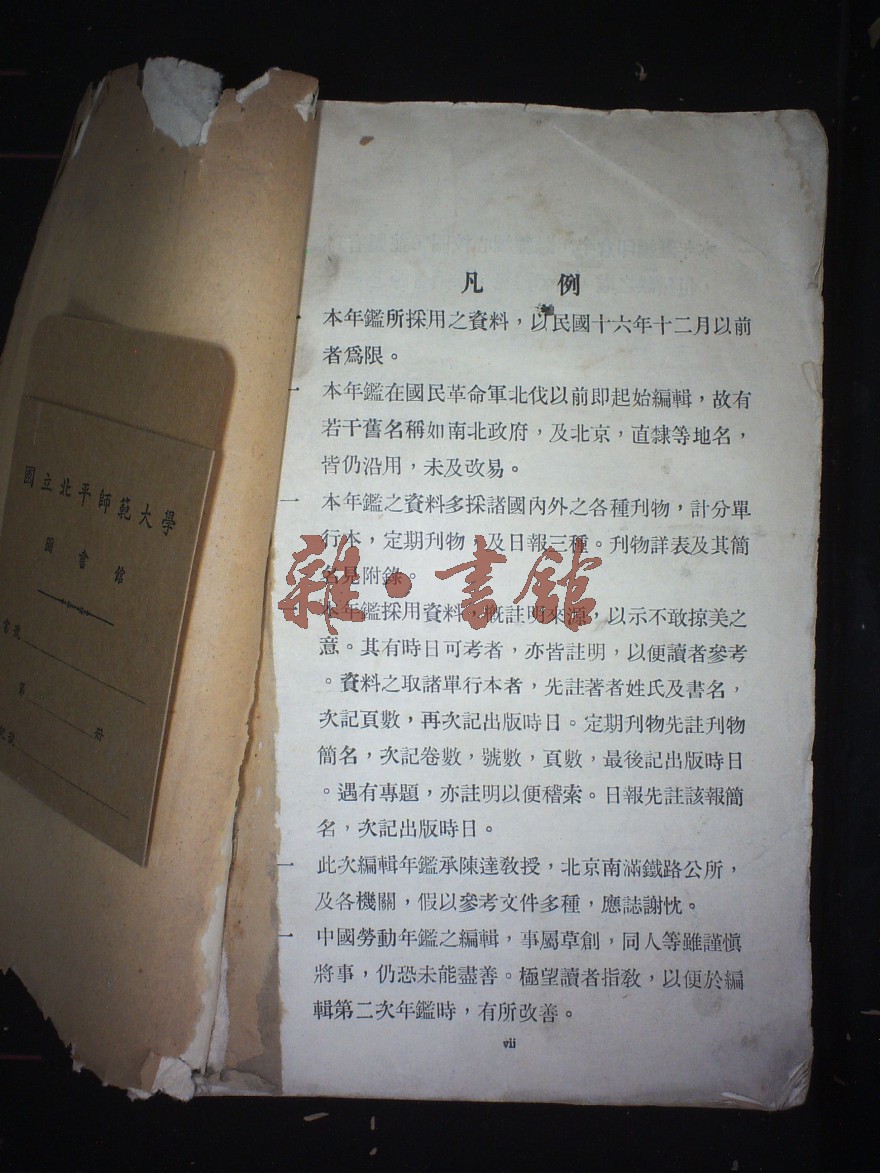 凡例
一 本年鑑所採用之資料，以民國十六年十二月以前
者爲限。
一 本年鑑在國民革命軍北伐以前即起始編輯，故有
若干舊名稱如南北政府，及北京，直隸等地名，
皆仍沿用，未及改易。
一 本年鑑之資料多採諸國內外之各種刊物，計分單
行本，定期刊物，及日報三種。刊物詳表及其簡
名見附錄。
一 本年鑑採用資料，概註明來源，以示不敢掠美之
意。其有時日可考者，亦皆註明，以便讀者參考
。資料之取諸單行本者，先註著者姓氏及書名，
次記頁數，再次記出版時日。定期刊物先註刊物
簡名，次記卷數，號數，頁數，最後記出版時日
。遇有專題，亦註明以便稽索。日報先註該報簡
名，次記出版時日。
一 此次編輯年鑑承陳達敎授，北京南滿鐵路公所，
及各機關，假以參考文件多種，應誌謝忱。
一 中國勞動年鑑之編輯，事屬草創，同人等雖謹愼
將事，仍恐未能盡善。極望讀者指敎，以便於編
輯第二次年鑑時，有所改善。
vii
國立北平師範大學
圖書館
書號
第 册
登記號
雜·書館